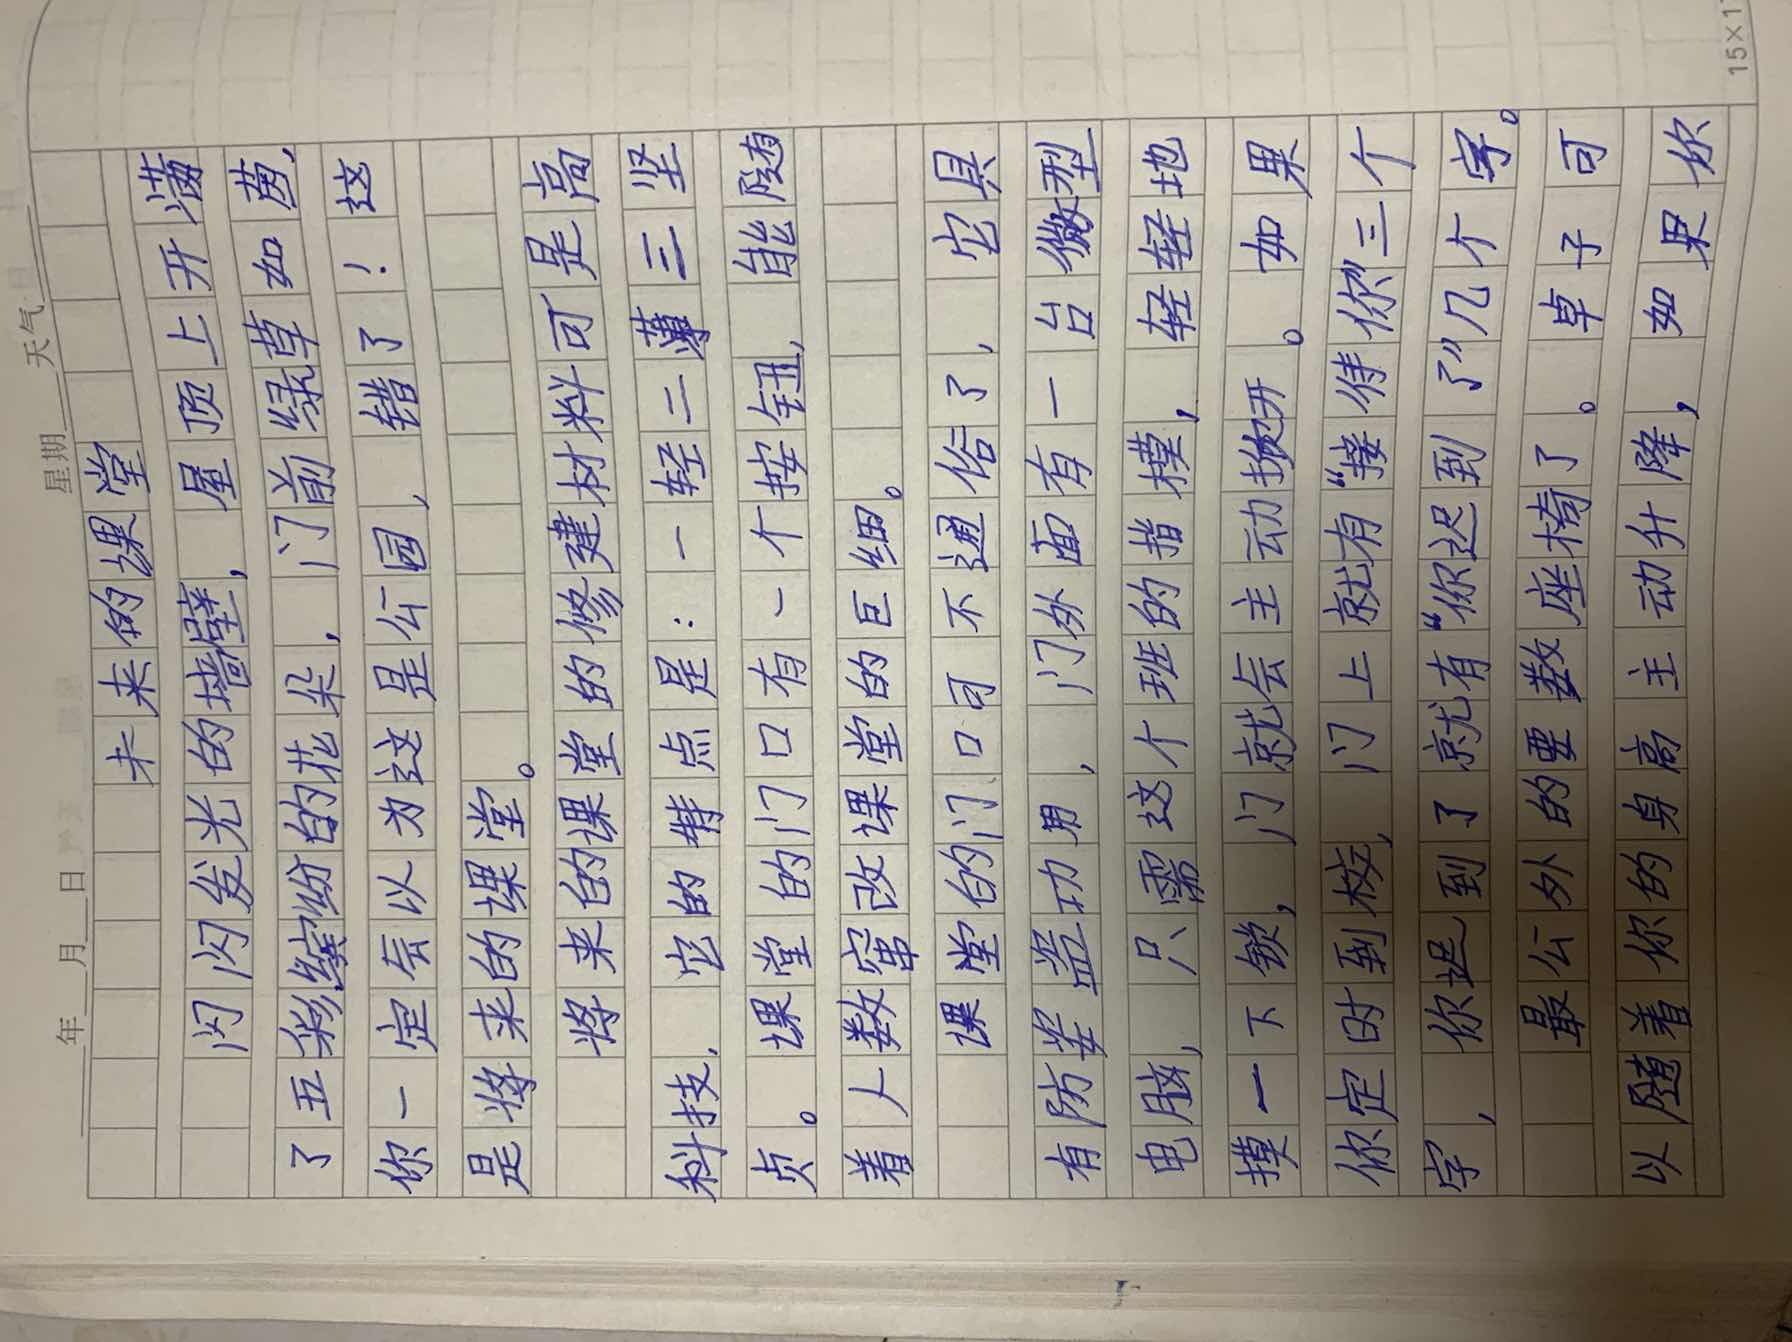 年 月 日 星期 天气
未来的课堂
闪闪发光的墙壁，屋顶上开满
了五彩缤纷的花朵，门前绿草如茵，
你一定会以为这是公园，错了！这
是将来的课堂。
将来的课堂的修建材料可是高
科技，它的特点是：一轻二薄三坚
贞。课堂的门口有一个按钮，能随
着人数窜改课堂的巨细。
课堂的门口可不通俗了，它具
有防盗功用，门外面有一台微型
电脑，只需这个班的指模，轻轻地
摸一下锁，门就会主动拨开。如果
你定时到校，门上就有“接待你”三个
字，你迟到了就有“你迟到了”几个字。
最公外的要数座椅了。桌子可
以随着你的身高主动升降，如果你
15×1